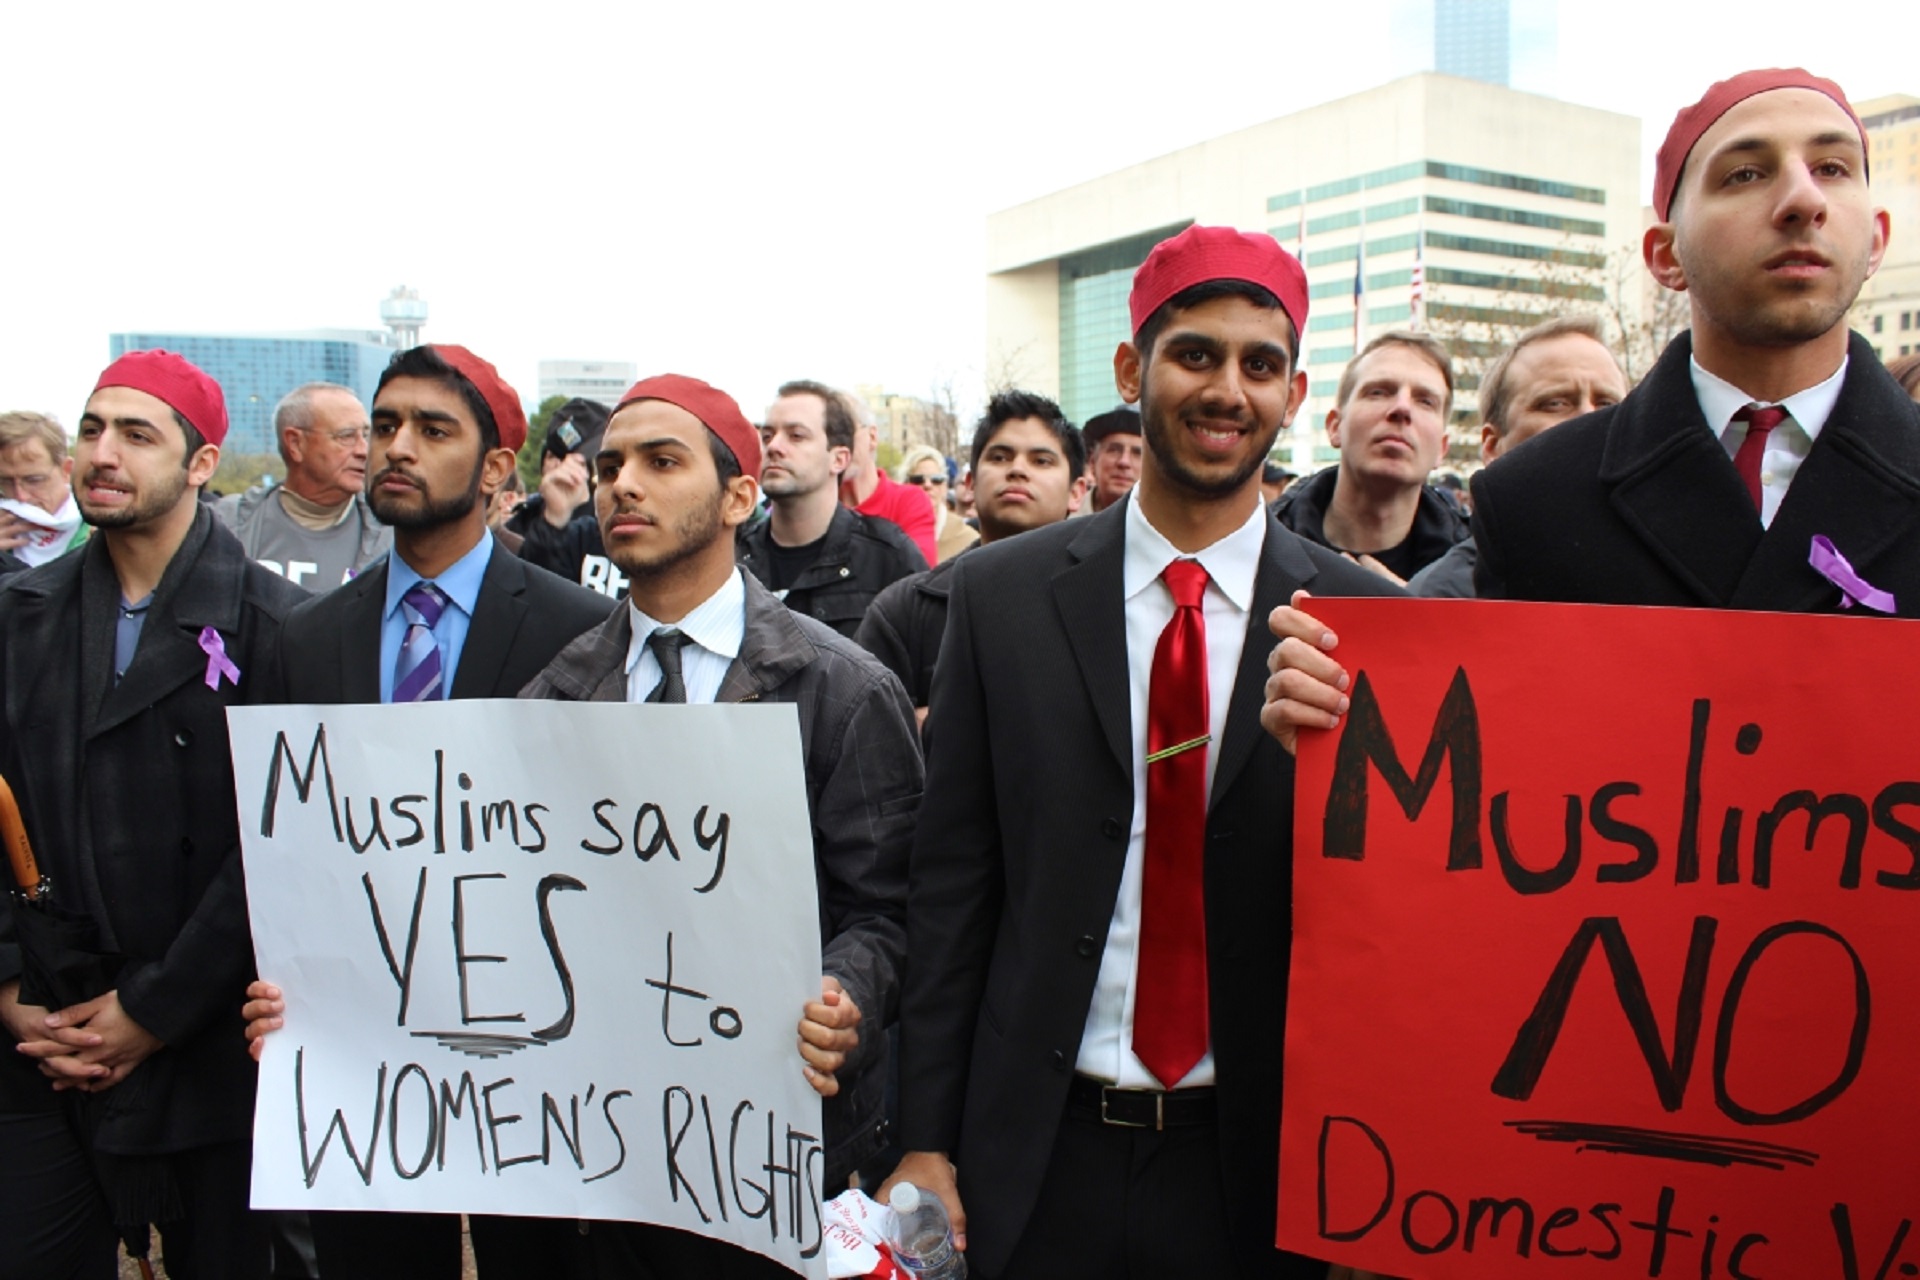 Muslims say
YES to
WOMEN'S RIGHTS
Muslims
NO
Domestic Vi